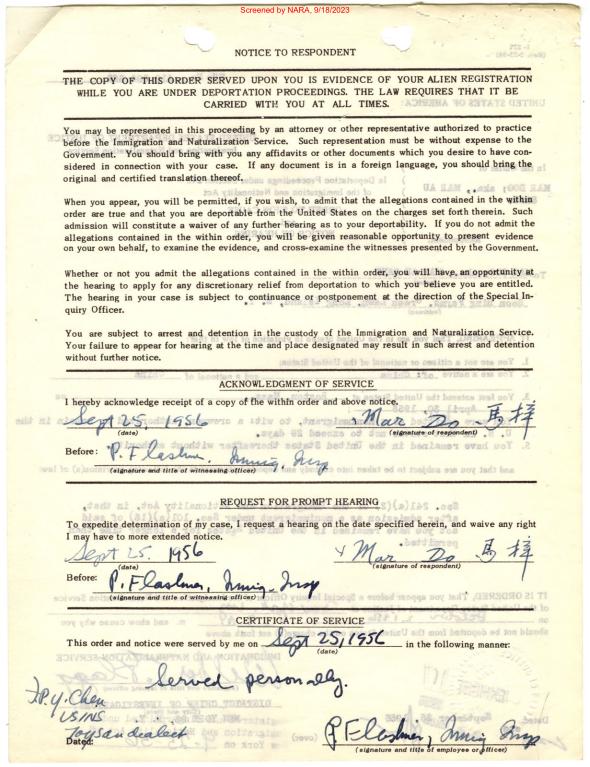 Screened by NARA, 9/18/2023
NOTICE TO RESPONDENT
THE COPY OF THIS ORDER SERVED UPON YOU IS EVIDENCE OF YOUR ALIEN REGISTRATION
WHILE YOU ARE UNDER DEPORTATION PROCEEDINGS. THE LAW REQUIRES THAT IT BE
CARRIED WITH YOU AT ALL TIMES.
You may be represented in this proceeding by an attorney or other representative authorized to practice
before the Immigration and Naturalization Service. Such representation must be without expense to the
Government. You should bring with you any affidavits or other documents which you desire to have con-
sidered in connection with your case. If any document is in a foreign language, you should bring the
original and certified translation thereof.
When you appear, you will be permitted, if you wish, to admit that the allegations contained in the within
order are true and that you are deportable from the United States on the charges set forth therein. Such
admission will constitute a waiver of any further hearing as to your deportability. If you do not admit the
allegations contained in the within order, you will be given reasonable opportunity to present evidence
on your own behalf, to examine the evidence, and cross-examine the witnesses presented by the Government.
Whether or not you admit the allegations contained in the within order, you will have an opportunity at
the hearing to apply for any discretionary relief from deportation to which you believe you are entitled.
The hearing in your case is subject to continuance or postponement at the direction of the Special In-
quiry Officer.
You are subject to arrest and detention in the custody of the Immigration and Naturalization Service.
Your failure to appear for hearing at the time and place designated may result in such arrest and detention
without further notice.
ACKNOWLEDGMENT OF SERVICE
I hereby acknowledge receipt of a copy of the within order and above notice.
Sept 25, 1956 x Mar Do 馬梓
(date) (signature of respondent)
Before: P. Flashner, Immig. Insp
(signature and title of witnessing officer)
REQUEST FOR PROMPT HEARING
To expedite determination of my case, I request a hearing on the date specified herein, and waive any right
I may have to more extended notice.
Sept 25, 1956 x Mar Do 馬梓
(date) (signature of respondent)
Before: P. Flashner, Immig. Insp
(signature and title of witnessing officer)
CERTIFICATE OF SERVICE
This order and notice were served by me on Sept 25, 1956 in the following manner:
(date)
Served personally.
P.Y. Chen
USINS
Toysan dialect
Dated: P. Flashner, Immig Insp
(over) (signature and title of employee or officer)